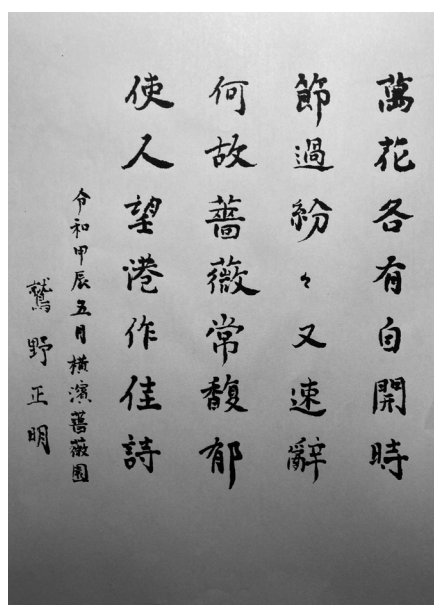 萬花各有自開時
節過紛々又速辭
何故薔薇常馥郁
使人望港作佳詩
令和甲辰五月橫濱薔薇園
鷲野正明